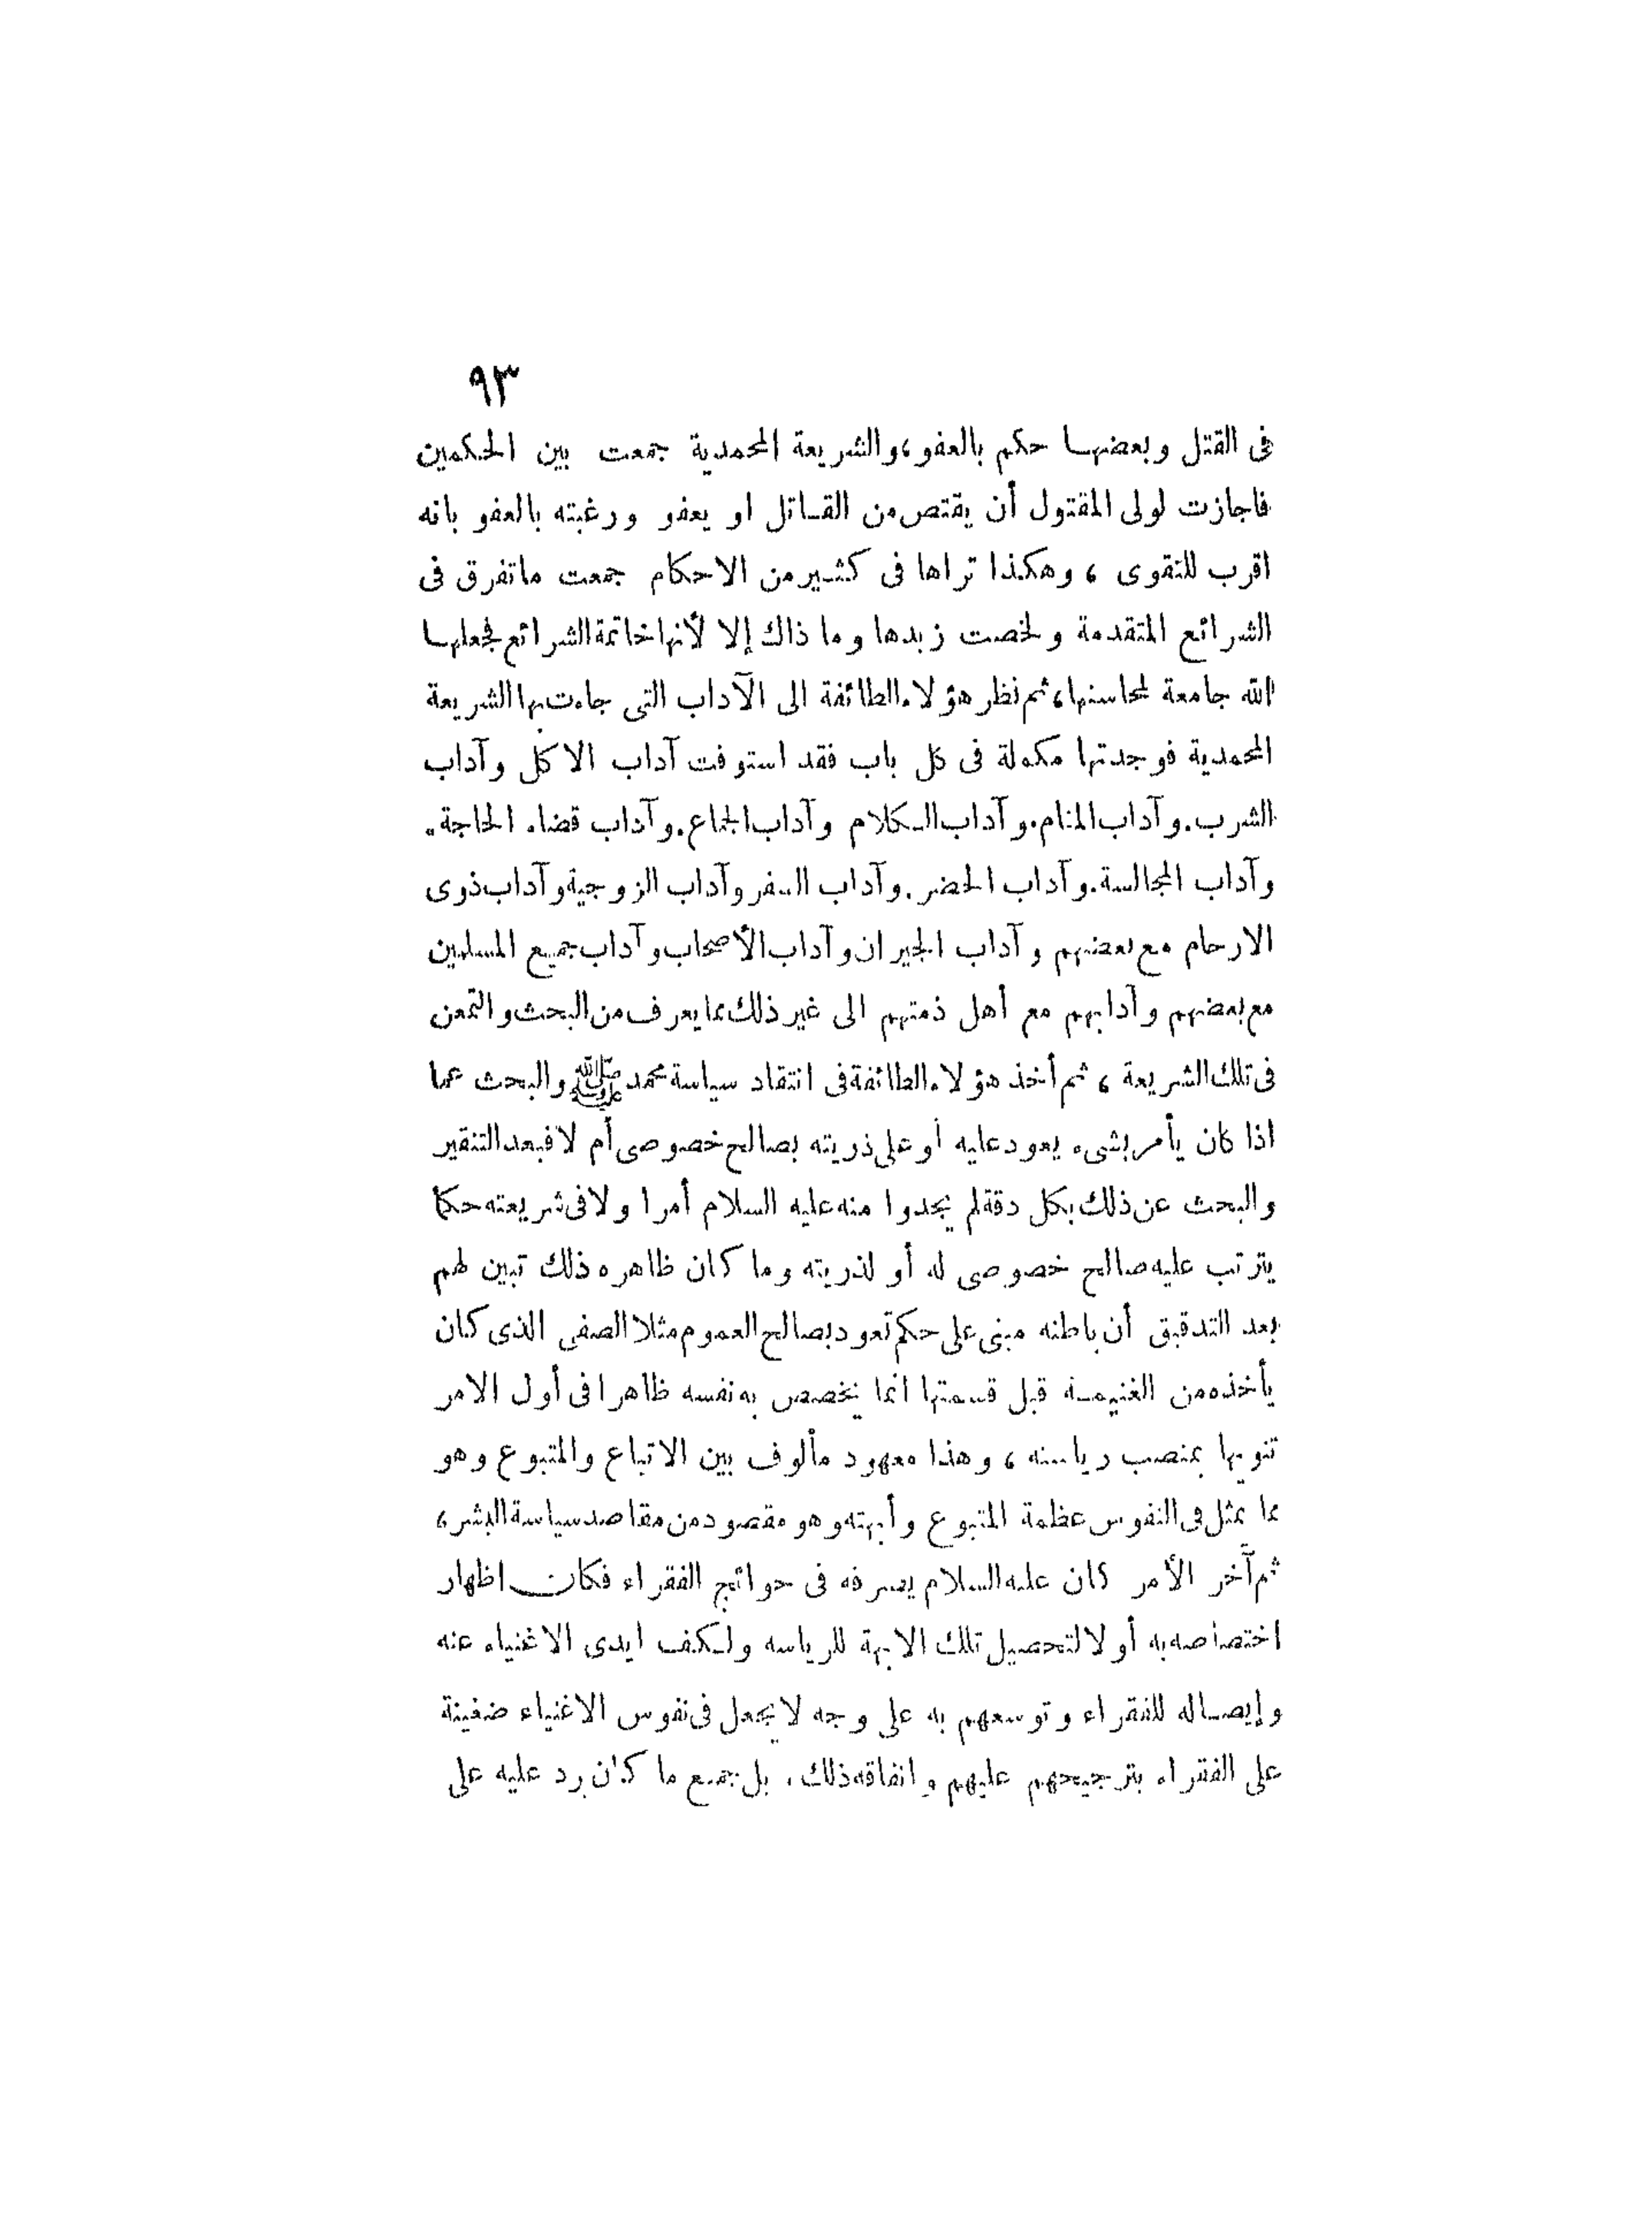 ٩٣
فى القتل وبعضها حكم بالعفو، والشريعة المحمدية جمعت بين الحكمين
فاجازت لولى المقتول أن يقتص من القاتل او يعفو ورغبته بالعفو بانه
اقرب للتقوى ، وهكذا تراها فى كثير من الاحكام جمعت ماتفرق فى
الشرائع المتقدمة ولخصت زبدها وما ذاك إلا لأنها خاتمة الشرائع فجعلها
الله جامعة لمحاسنها، ثم نظر هؤلاء الطائفة الى الآداب التى جاءت بها الشريعة
المحمدية فوجدتها مكملة فى كل باب فقد استوفت آداب الاكل وآداب
الشرب. وآداب المنام. وآداب الكلام وآداب الجماع. وآداب قضاء الحاجة.
وآداب المجالسة. وآداب الحضر. وآداب السفر وآداب الزوجية وآداب ذوى
الارحام مع بعضهم وآداب الجيران وآداب الأصحاب وآداب جميع المسلمين
مع بعضهم وآدابهم مع أهل ذمتهم الى غير ذلك مما يعرف من البحث والتمعن
فى تلك الشريعة ، ثم أخذ هؤلاء الطائفة فى انتقاد سياسة محمد ﷺ والبحث عما
اذا كان يأمر بشىء يعود عليه أو على ذريته بصالح خصوصى أم لا فبعد التنقير
والبحث عن ذلك بكل دقة لم يجدوا منه عليه السلام أمرا ولا فى شريعته حكما
يترتب عليه صالح خصوصى له أو لذريته وما كان ظاهره ذلك تبين لهم
بعد التدقيق أن باطنه مبنى على حكم تعود بصالح العموم مثلا الصفى الذى كان
يأخذه من الغنيمة قبل قسمتها انما يخصص به نفسه ظاهرا فى أول الامر
تنويها بمنصب رياسته ، وهذا معهود مألوف بين الاتباع والمتبوع وهو
مما يمثل فى النفوس عظمة المتبوع وأبهته وهو مقصود من مقاصد سياسة البشر ،
ثم آخر الأمر كان عليه السلام يصرفه فى حوائج الفقراء فكان اظهار
اختصاصه به أولا لتحصيل تلك الابهة للرياسه ولكف ايدى الاغنياء عنه
وإيصاله للفقراء وتوسعهم به على وجه لا يجعل فى نفوس الاغنياء ضغينة
على الفقراء بترجيحهم عليهم وانفاقه ذلك . بل جميع ما كان يرد عليه على